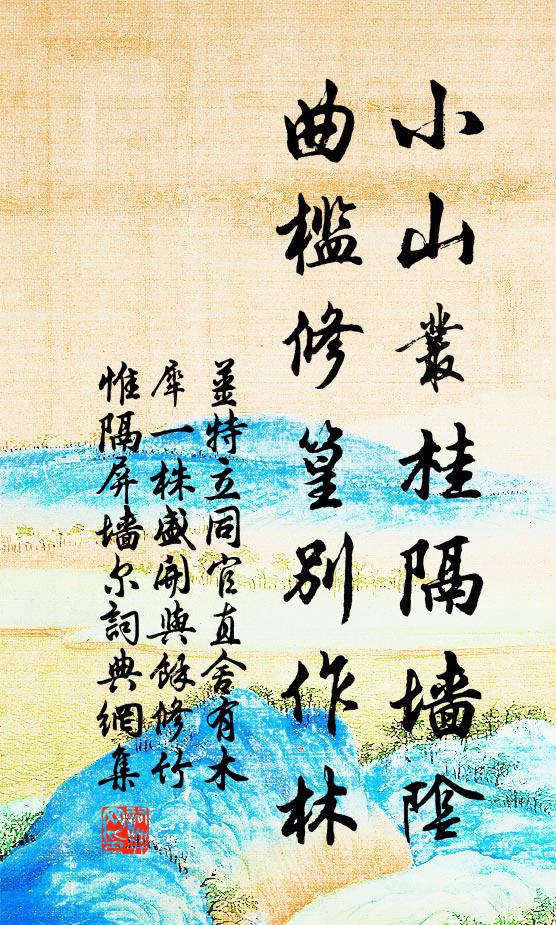 小山叢桂隔墙陰
曲檻修篁別作林
姜特立同官直舍有木
犀一株盛開與餘修竹
惟隔屏墙尔詞典網集